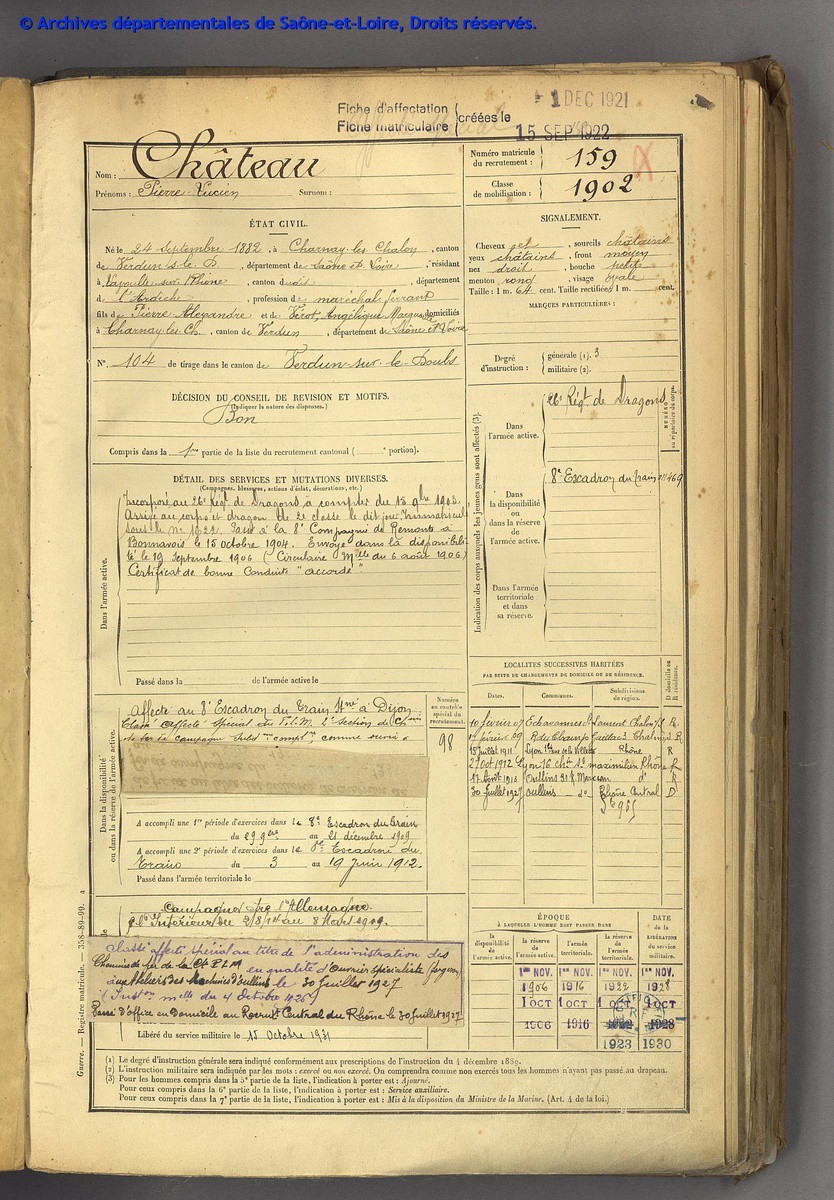 © Archives départementales de Saône-et-Loire, Droits réservés.
Fiche d'affectation
Fiche matriculaire
créées le
1 DEC 1921
15 SEP 1922
Nom : Château
Prénoms : Pierre-Lucien Surnom :
Numéro matricule du recrutement : 159
Classe de mobilisation : 1902
ÉTAT CIVIL.
Né le 24 septembre 1882, à Charnay-les-Chalon, canton
de Verdun s. le D., département de Saône et Loire, résidant
à Lavoulte-sur-Rhône, canton dudit, département
de l'Ardèche, profession de maréchal ferrant
fils de Pierre Alexandre et de Vérot, Angélique domiciliés
à Charnay les Ch., canton de Verdun, département de Saône et Loire
N°. 104 de tirage dans le canton de Verdun-sur-le-Doubs
SIGNALEMENT.
Cheveux et, sourcils châtains
yeux châtains, front moyen
nez droit, bouche petite
menton rond, visage ovale
Taille : 1 m. 64 cent. Taille rectifiée 1 m. cent.
MARQUES PARTICULIÈRES :
Degré d'instruction : générale (1). 3
militaire (2).
DÉCISION DU CONSEIL DE REVISION ET MOTIFS.
(Indiquer la nature des dispenses.)
Bon
Compris dans la 1re partie de la liste du recrutement cantonal ( portion).
DÉTAIL DES SERVICES ET MUTATIONS DIVERSES.
(Campagnes, blessures, actions d'éclat, décorations, etc.)
Dans l'armée active.
Incorporé au 26e Régt de Dragons à compter du 15 9bre 1903.
Arrivé au corps et dragon de 2e classe le dit jour, Immatriculé
sous le n° 1622. Passé à la 8e Compagnie de Remonte à
Bonnavois le 15 octobre 1904. Envoyé dans la disponibili-
té le 19 septembre 1906 (Circulaire Mlle du 6 août 1906)
Certificat de bonne Conduite "accordé".
Passé dans la de l'armée active le
Indication des corps auxquels les jeunes gens sont affectés (3).
NUMÉRO au répertoire du corps.
Dans l'armée active.
26e Régt de Dragons
Dans la disponibilité ou dans la réserve de l'armée active.
8e Escadron du train
Dans l'armée territoriale et dans sa réserve.
Dans la disponibilité ou dans la réserve de l'armée active.
Affecté au 8e Escadron du Train à Dijon
Numéro au contrôle spécial du recrutement.
98
A accompli une 1re période d'exercices dans le 8e Escadron du train
du 29 9bre au 21 décembre 1909
A accompli une 2e période d'exercices dans le 8e Escadron du
Train du 3 au 19 Juin 1912.
Passé dans l'armée territoriale le
Campagne contre l'Allemagne
Classé affecté spécial au titre de l'administration des
Chemins de fer de la Cie P L M en qualité d'Ouvrier spécialiste (forgeron)
aux Ateliers des Machines d'oullins le 30 Juillet 1927
(Inston mlle du 4 Octobre 1926)
Passé d'office en Domicile au Recrut Central du Rhône le 30 Juillet 1927
Libéré du service militaire le 15 Octobre 1931
LOCALITÉS SUCCESSIVES HABITÉES
PAR SUITE DE CHANGEMENTS DE DOMICILE OU DE RÉSIDENCE.
Dates. Communes. Subdivisions de région. D domicile ou R résidence.
10 février 07 St Laurent Chalon R
février 09 Chalon R
15 juillet 1911 Lyon Rhône R
2 oct 1912 Lyon 16 ch. St maximilien Rhône R
17 Août 1916 Oullins R
30 Juillet 1927 oullins Rhône Central D
ÉPOQUE
À LAQUELLE L'HOMME DOIT PASSER DANS
la disponibilité de l'armée active. la réserve de l'armée active. l'armée territoriale. la réserve de l'armée territoriale. DATE de la LIBÉRATION du service militaire.
1er NOV. 1er NOV. 1er NOV. 1er NOV.
1906 1916 1922 1928
1 OCT 1 OCT 1 OCT 1 OCT
1906 1916 1922 1928
1923 1930
(1) Le degré d'instruction générale sera indiqué conformément aux prescriptions de l'instruction du 4 décembre 1889.
(2) L'instruction militaire sera indiquée par les mots : exercé ou non exercé. On comprendra comme non exercés tous les hommes n'ayant pas passé au drapeau.
(3) Pour les hommes compris dans la 5e partie de la liste, l'indication à porter est : Ajourné.
Pour ceux compris dans la 6e partie de la liste, l'indication à porter est : Service auxiliaire.
Pour ceux compris dans la 7e partie de la liste, l'indication à porter est : Mis à la disposition du Ministre de la Marine. (Art. 4 de la loi.)
Guerre. — Registre matricule. — 358-89-99.